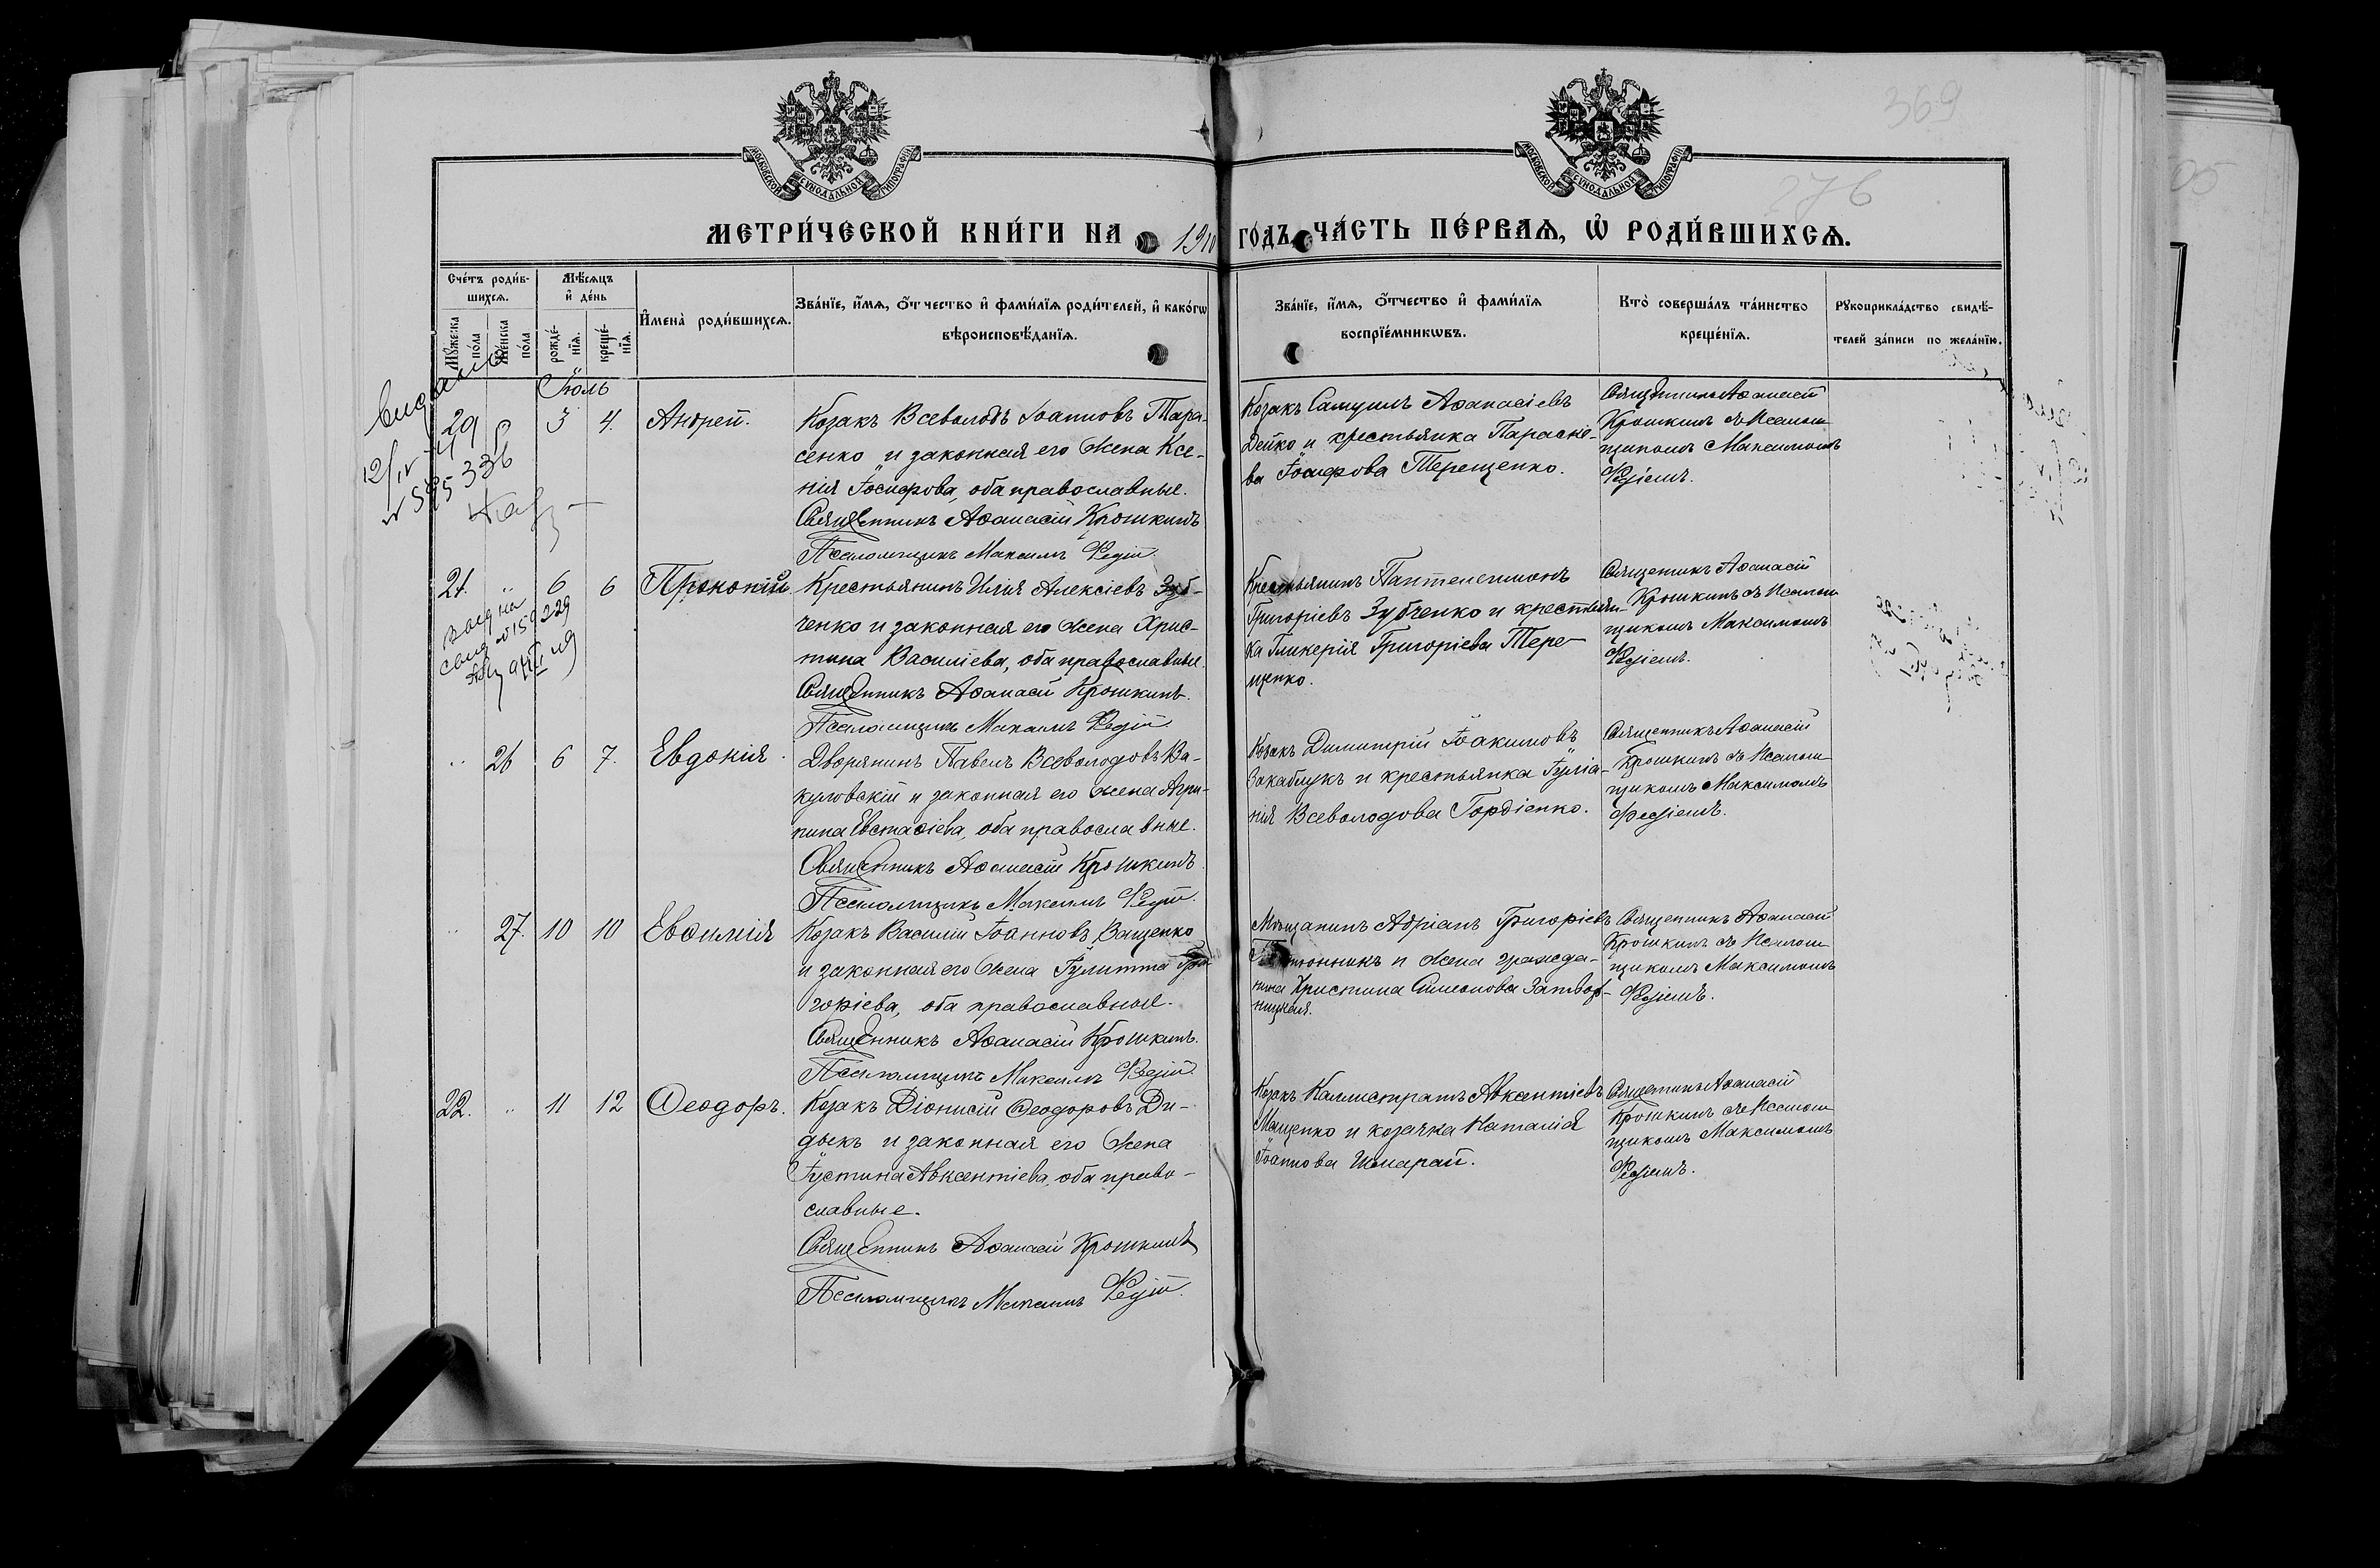 369
276
МОСКОВСКОЙ СѴНОДАЛЬНОЙ ТИПОГРАФІИ
МОСКОВСКОЙ СѴНОДАЛЬНОЙ ТИПОГРАФІИ
МЕТРИ́ЧЕСКОЙ КНИ́ГИ НА 1910 ГО́ДЪ, ЧА́СТЬ ПЕ́РВАѦ, Ѡ҆ РОДИ́ВШИХСѦ.
Сче́тъ роди́в-
шихсѧ.
Мꙋ́жеска по́ла
Же́нска по́ла
Мѣ́сѧцъ
и҆ де́нь
рожде́-
нїѧ.
креще́-
нїѧ.
И҆мена̀ роди́вшихсѧ.
Зва́нїе, и҆́мѧ, ѻ҆́тчество и҆ фами́лїѧ роди́телей, и҆ како́гѡ
вѣроисповѣ́данїѧ.
Зва́нїе, и҆́мѧ, ѻ҆́тчество и҆ фами́лїѧ
воспрїе́мникѡвъ.
Кто̀ соверша́лъ та́инство
креще́нїѧ.
Рꙋкоприкла́дство свидѣ́-
телей за́писи по жела́нїю.
Іюль
29 3 4. Андрей.
Козакъ Всеволодъ Іоанновъ Тара-
сенко и законная его жена Ксе-
нія Іосифова, оба православные.
Священникъ Аѳанасій Крошкинъ
Псаломщикъ Максимъ Федій
Козакъ Самуилъ Аѳанасіевъ
Дейко и крестьянка Параске-
ва Іосифова Терещенко.
Священникъ Аѳанасій
Крошкинъ съ Псалом-
щикомъ Максимомъ
Федіемъ.
21. " 6 6 Прокопій.
Крестьянинъ Илія Алексіевъ Зуб-
ченко и законная его жена Хрис-
тина Василіева, оба православные.
Священникъ Аѳанасій Крошкинъ.
Псаломщикъ Максимъ Федій
Крестьянинъ Пантелеимонъ
Григоріевъ Зубченко и крестьян-
ка Гликерія Григоріева Тере-
щенко.
Священикъ Аѳанасій
Крошкинъ съ Псалом-
щикомъ Максимомъ
Федіемъ.
" 26 6 7. Евдокія.
Дворянинъ Павелъ Всеволодовъ Ва-
куловскій и законная его жена Агри-
пина Евстаѳіева, оба православные.
Священникъ Аѳанасій Крошкинъ
Псаломщикъ Максимъ Федій.
Козакъ Димитрій Іоакимовъ
Закаблукъ и крестьянка Іуліа-
нія Всеволодова Гордіенко.
Священникъ Аѳанасій
Крошкинъ съ Псалом-
щикомъ Максимомъ
Федіемъ.
" 27. 10 10 Евѳимія
Козакъ Василій Іоанновъ Ващенко
и законная его жена Іулитта Гри-
горіева, оба православные.
Священникъ Аѳанасій Крошкинъ.
Псаломщикъ Максимъ Федій.
Мѣщанинъ Адріанъ Григоріевъ
и жена гражда-
нина Христина Симеонова Затвор-
ницкая.
Священникъ Аѳанасій
Крошкинъ съ Псалом-
щикомъ Максимомъ
Федіемъ.
22. " 11 12 Ѳеодоръ.
Козакъ Діонисій Ѳеодоровъ Ди-
дыкъ и законная его жена
Іустина Авксентіева, оба право-
славные.
Священникъ Аѳанасій Крошкинъ
Псаломщикъ Максимъ Федій.
Козакъ Каллистратъ Авксентіевъ
Мащенко и козачка Наталія
Іоаннова Шмарай.
Священникъ Аѳанасій
Крошкинъ съ Псалом-
щикомъ Максимомъ
Федіемъ.